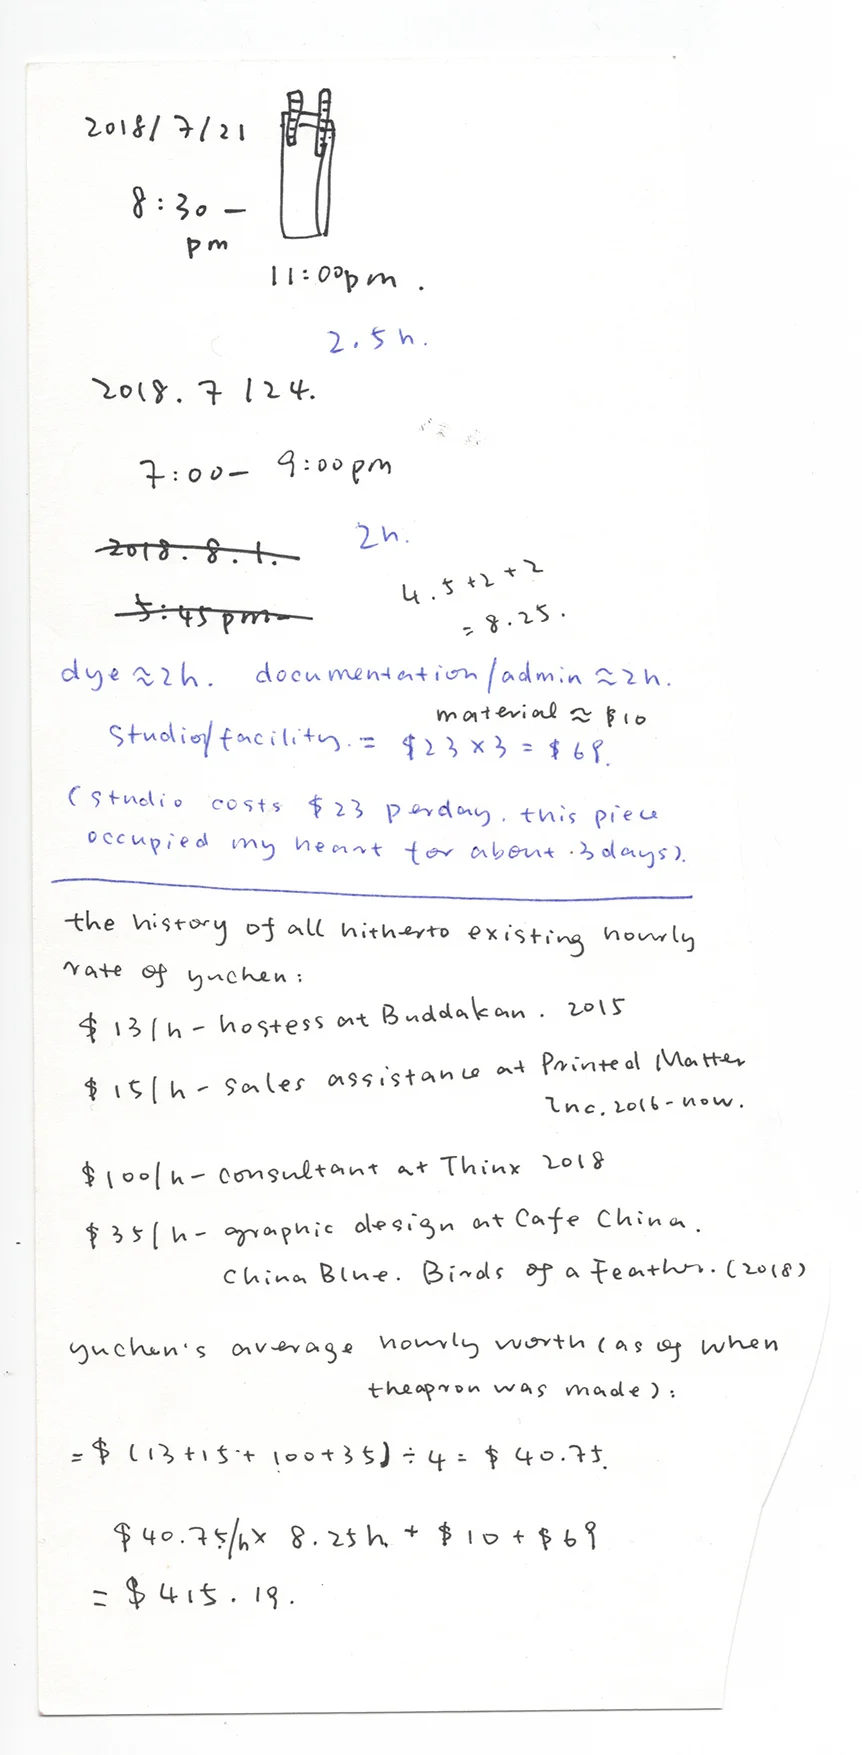 2018/7/21
8:30 –
pm
11:00pm.
2.5h.
2018.7/24.
7:00– 9:00pm
2h.
2018.8.1.
5:45pm–
4.5+2+2
= 8.25.
dye ≈2h. documentation/admin ≈2h.
material ≈ $10
studio/facility. = $23×3 = $69.
(studio costs $23 perday. this piece
occupied my heart for about 3days).
the history of all hitherto existing hourly
rate of yuchen:
$13/h – hostess at Buddakan. 2015
$15/h – sales assistance at Printed Matter
Inc. 2016–now.
$100/h – consultant at Thinx 2018
$35/h – graphic design at Cafe China.
China Blue. Birds of a Feather. (2018)
yuchen's average hourly worth (as of when
theapron was made):
=$ (13+15+100+35) ÷4 = $40.75.
$40.75/h× 8.25h + $10 + $69
= $415.19.